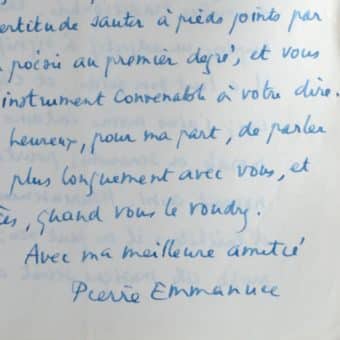 ertitude sauter à pieds joints par
poésie au premier degré, et vous
instrument convenable à votre dire.
heureux, pour ma part, de parler
plus longuement avec vous, et
quand vous le voudrez.
Avec ma meilleure amitié
Pierre Emmanuel